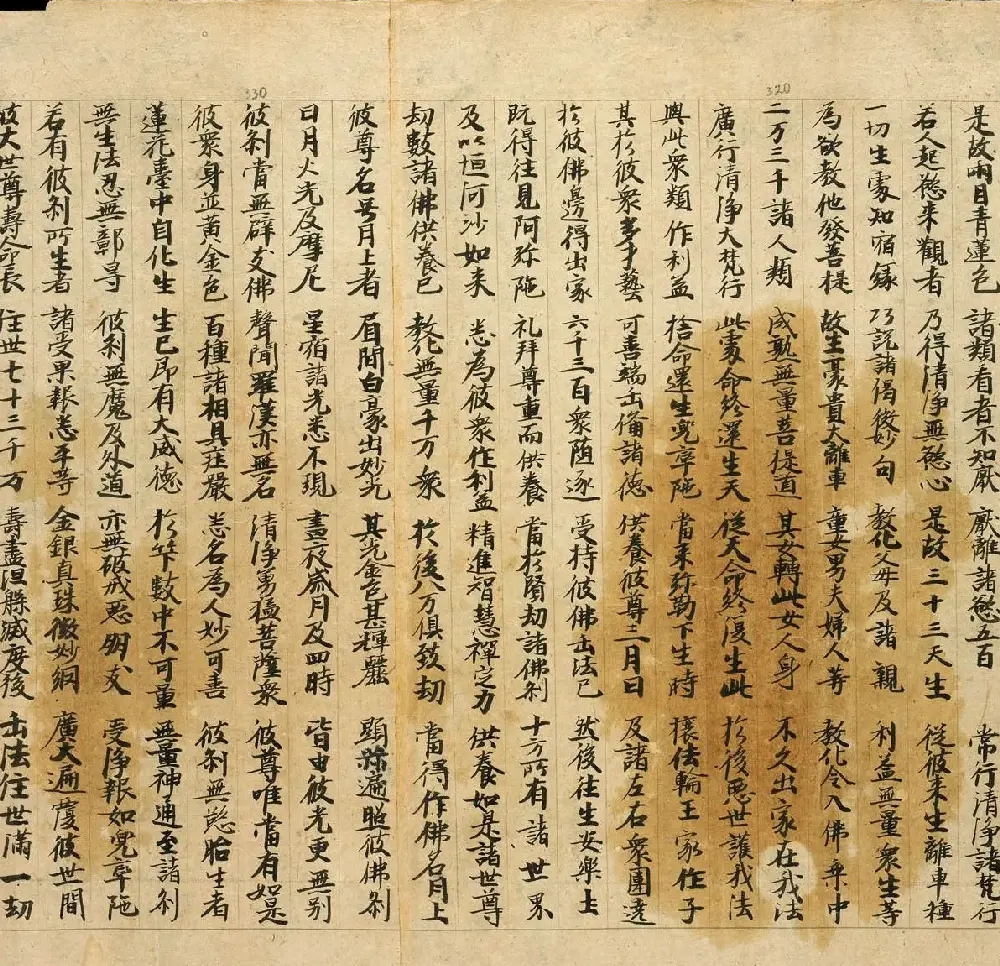 320
330
是故兩目青蓮色 諸類看者不知厭 厭離諸慾五百 常行清淨諸梵行
若人起慾來觀者 乃得清淨無慾心 是故三十三天生 從彼來生離車種
一切生處知宿緣 巧說諸偈後妙句 教化父母及諸親 利益無量衆生等
為欲教他發菩提 故生豪貴大離車 童女男夫婦人等 教化令入佛乘中
二万三千諸人類 成熟無量菩提道 其女轉此女人身 不久出家在我法
廣行清淨大梵行 此處命終還生天 從天命終復生此 於後惡世護我法
興此衆類作利益 捨命還生兜率陁 當來弥勒下生時 穰法輪王家作子
其於彼衆多才藝 可善端正備諸德 供養彼尊三月日 及諸左右衆團遶
於彼佛邊得出家 六千三百衆陪逐 受持彼佛正法已 然後往生安樂土
既得往見阿弥陁 礼拜尊重而供養 當於賢劫諸佛剎 十方所有諸世界
及以垣河沙如來 悉為彼衆作利益 精進智慧禪定力 供養如是諸世尊
劫數諸佛供養已 教化無量千万衆 於後八万俱致劫 當得作佛名月上
彼尊名号月上者 眉間白豪出妙光 其光金色甚輝麗 顯赫遍照彼佛剎
日月火光及摩尼 星宿諸光悉不現 晝夜歲月及四時 皆由彼光更無別
彼剎當無辟支佛 聲聞羅漢亦無名 清淨勇猛菩薩衆 彼尊唯當有如是
彼衆身並黃金色 百種諸相具莊嚴 悉名為人妙可善 彼剎無慾胎生者
蓮花臺中自化生 生已即有大威德 於筭數中不可量 無量神通至諸剎
無生法忍無鄣㝵 彼剎無魔及外道 亦無破戒惡朋友 受淨報如兜率陁
若有彼剎所生者 諸受果報悉平等 金銀真珠微妙網 廣大遍覆彼世間
彼大世尊壽命長 住世七十三千万 壽盡涅槃滅度後 正法住世滿一劫